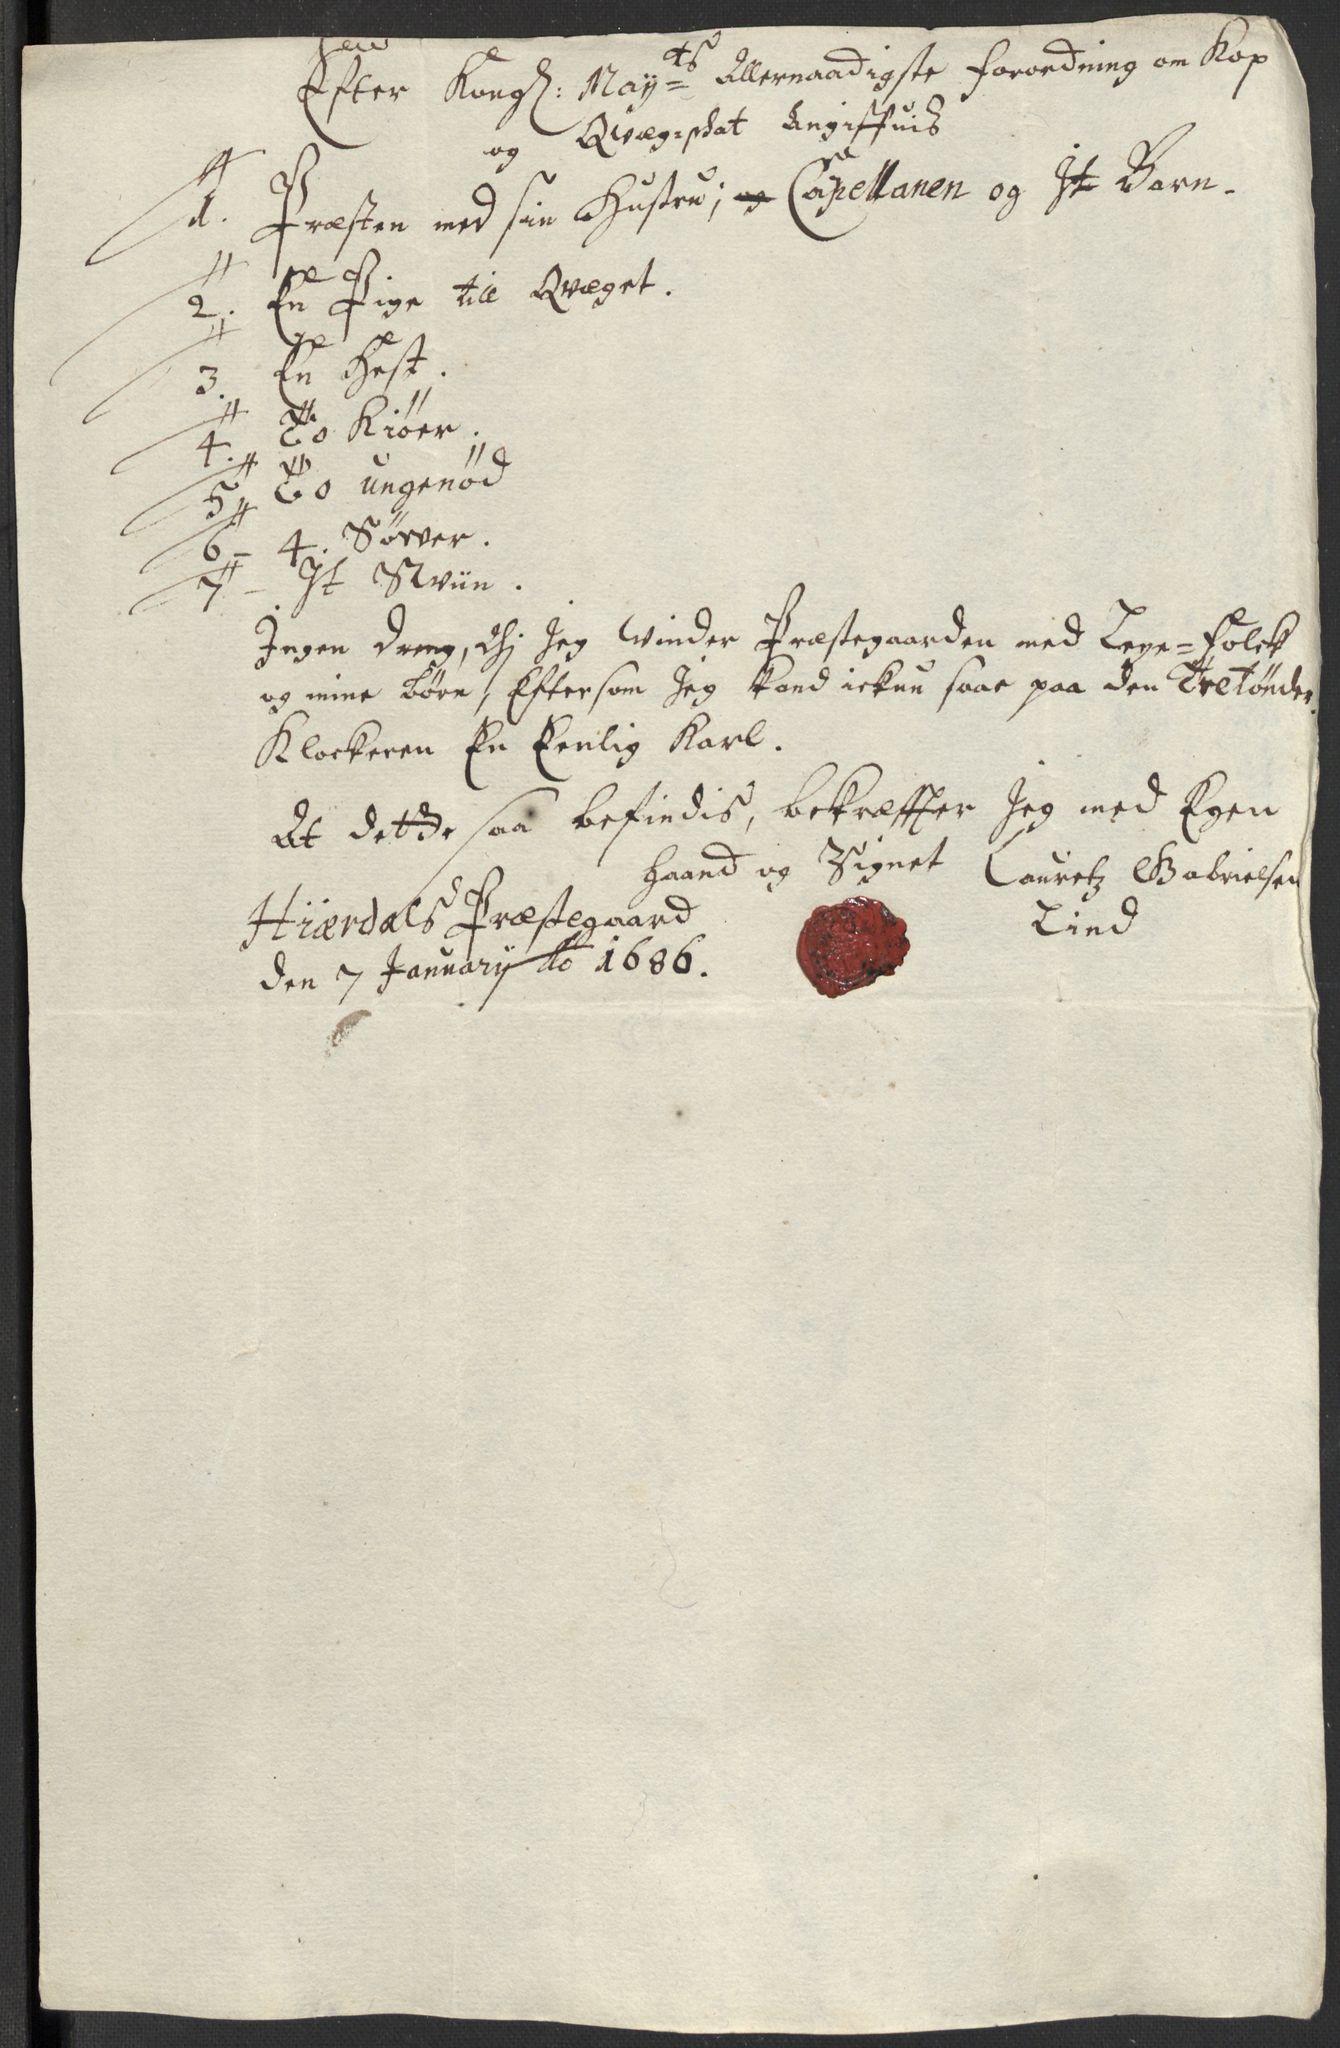 Efter Kongl: May=ts Allernaadigste forordning om Kop
og Qvæg=skat Angiffuis
1. Præsten med sin Hustru; og Capellanen og It Barn.
2. En Pige till Qvæget.
3. En Hest.
4. To Kiöer.
5 To ungenöd
6 - 4. Söwer.
7 - It Swiin.
Ingen dreng, thj Jeg winder Præstegaarden med Leye=folck
og mine börn, Eftersom Jeg kand ickun saae paa den Tre tönder.
Klockeren En Eenlig Karl.
At dette saa befindis, bekræffter Jeg med Egen
haand og Signet Lauretz Gabrielsen
Hiærdals Præstegaard Lind
den 7 January Ao 1686.